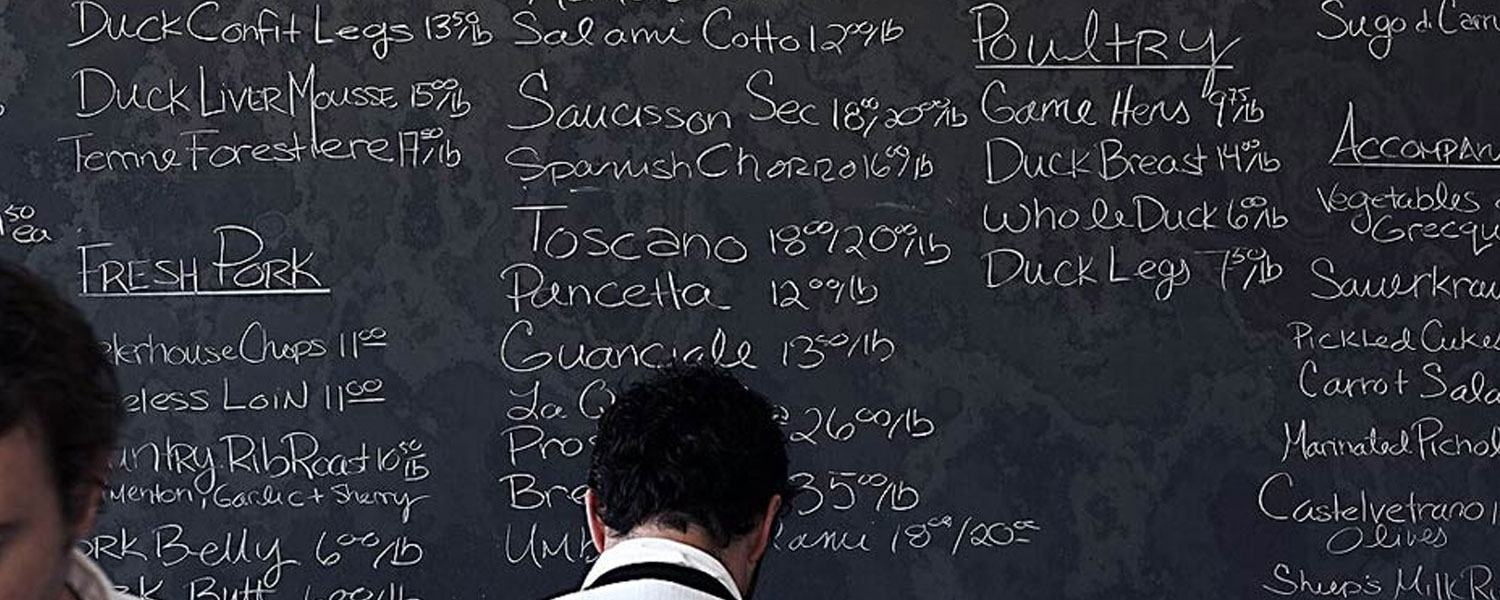 Duck Confit Legs 13⁵⁰/lb
Duck Liver Mousse 15⁰⁰/lb
Terrine Forestiere 17⁵⁰/lb
50
ea
Fresh Pork
Chops 11⁰⁰
Loin 11⁰⁰
Rib Roast 10⁵⁰/lb
Menton, Garlic + Sherry
Belly 6⁰⁰/lb
Butt
Salami Cotto 12⁰⁰/lb
Saucisson Sec 18⁰⁰/20⁰⁰/lb
Spanish Chorizo 16⁰⁰/lb
Toscano 18⁰⁰/20⁰⁰/lb
Pancetta 12⁰⁰/lb
Guanciale 13⁵⁰/lb
La
26⁰⁰/lb
Pros
Bre 35⁰⁰/lb
Umb ami 18⁰⁰/20⁰⁰
Poultry
Game Hens 9⁷⁵/lb
Duck Breast 14⁰⁰/lb
Whole Duck 6⁰⁰/lb
Duck Legs 7⁵⁰/lb
Sugo di Carn
Accompan
Vegetables
Grecqu
Sauerkrau
Pickled Cukes
Carrot Sala
Marinated Pichol
Castelvetrano
Olives
Sheep's Milk Ri